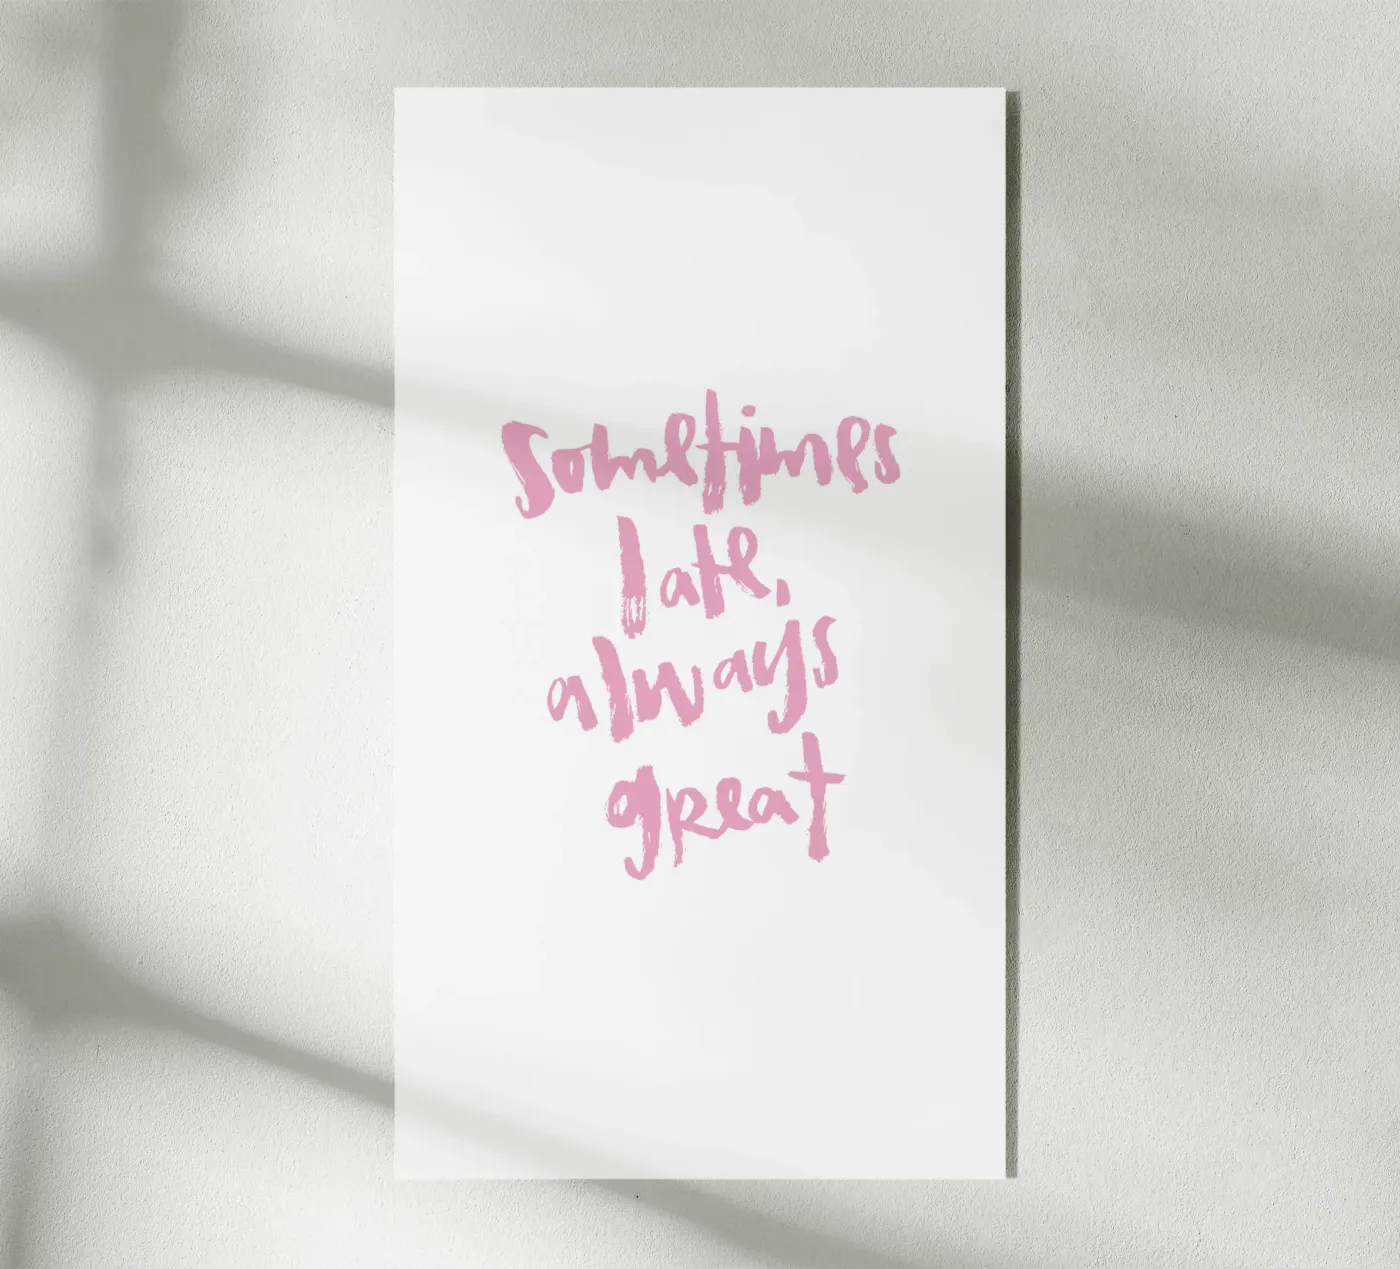 Sometimes
late,
always
great